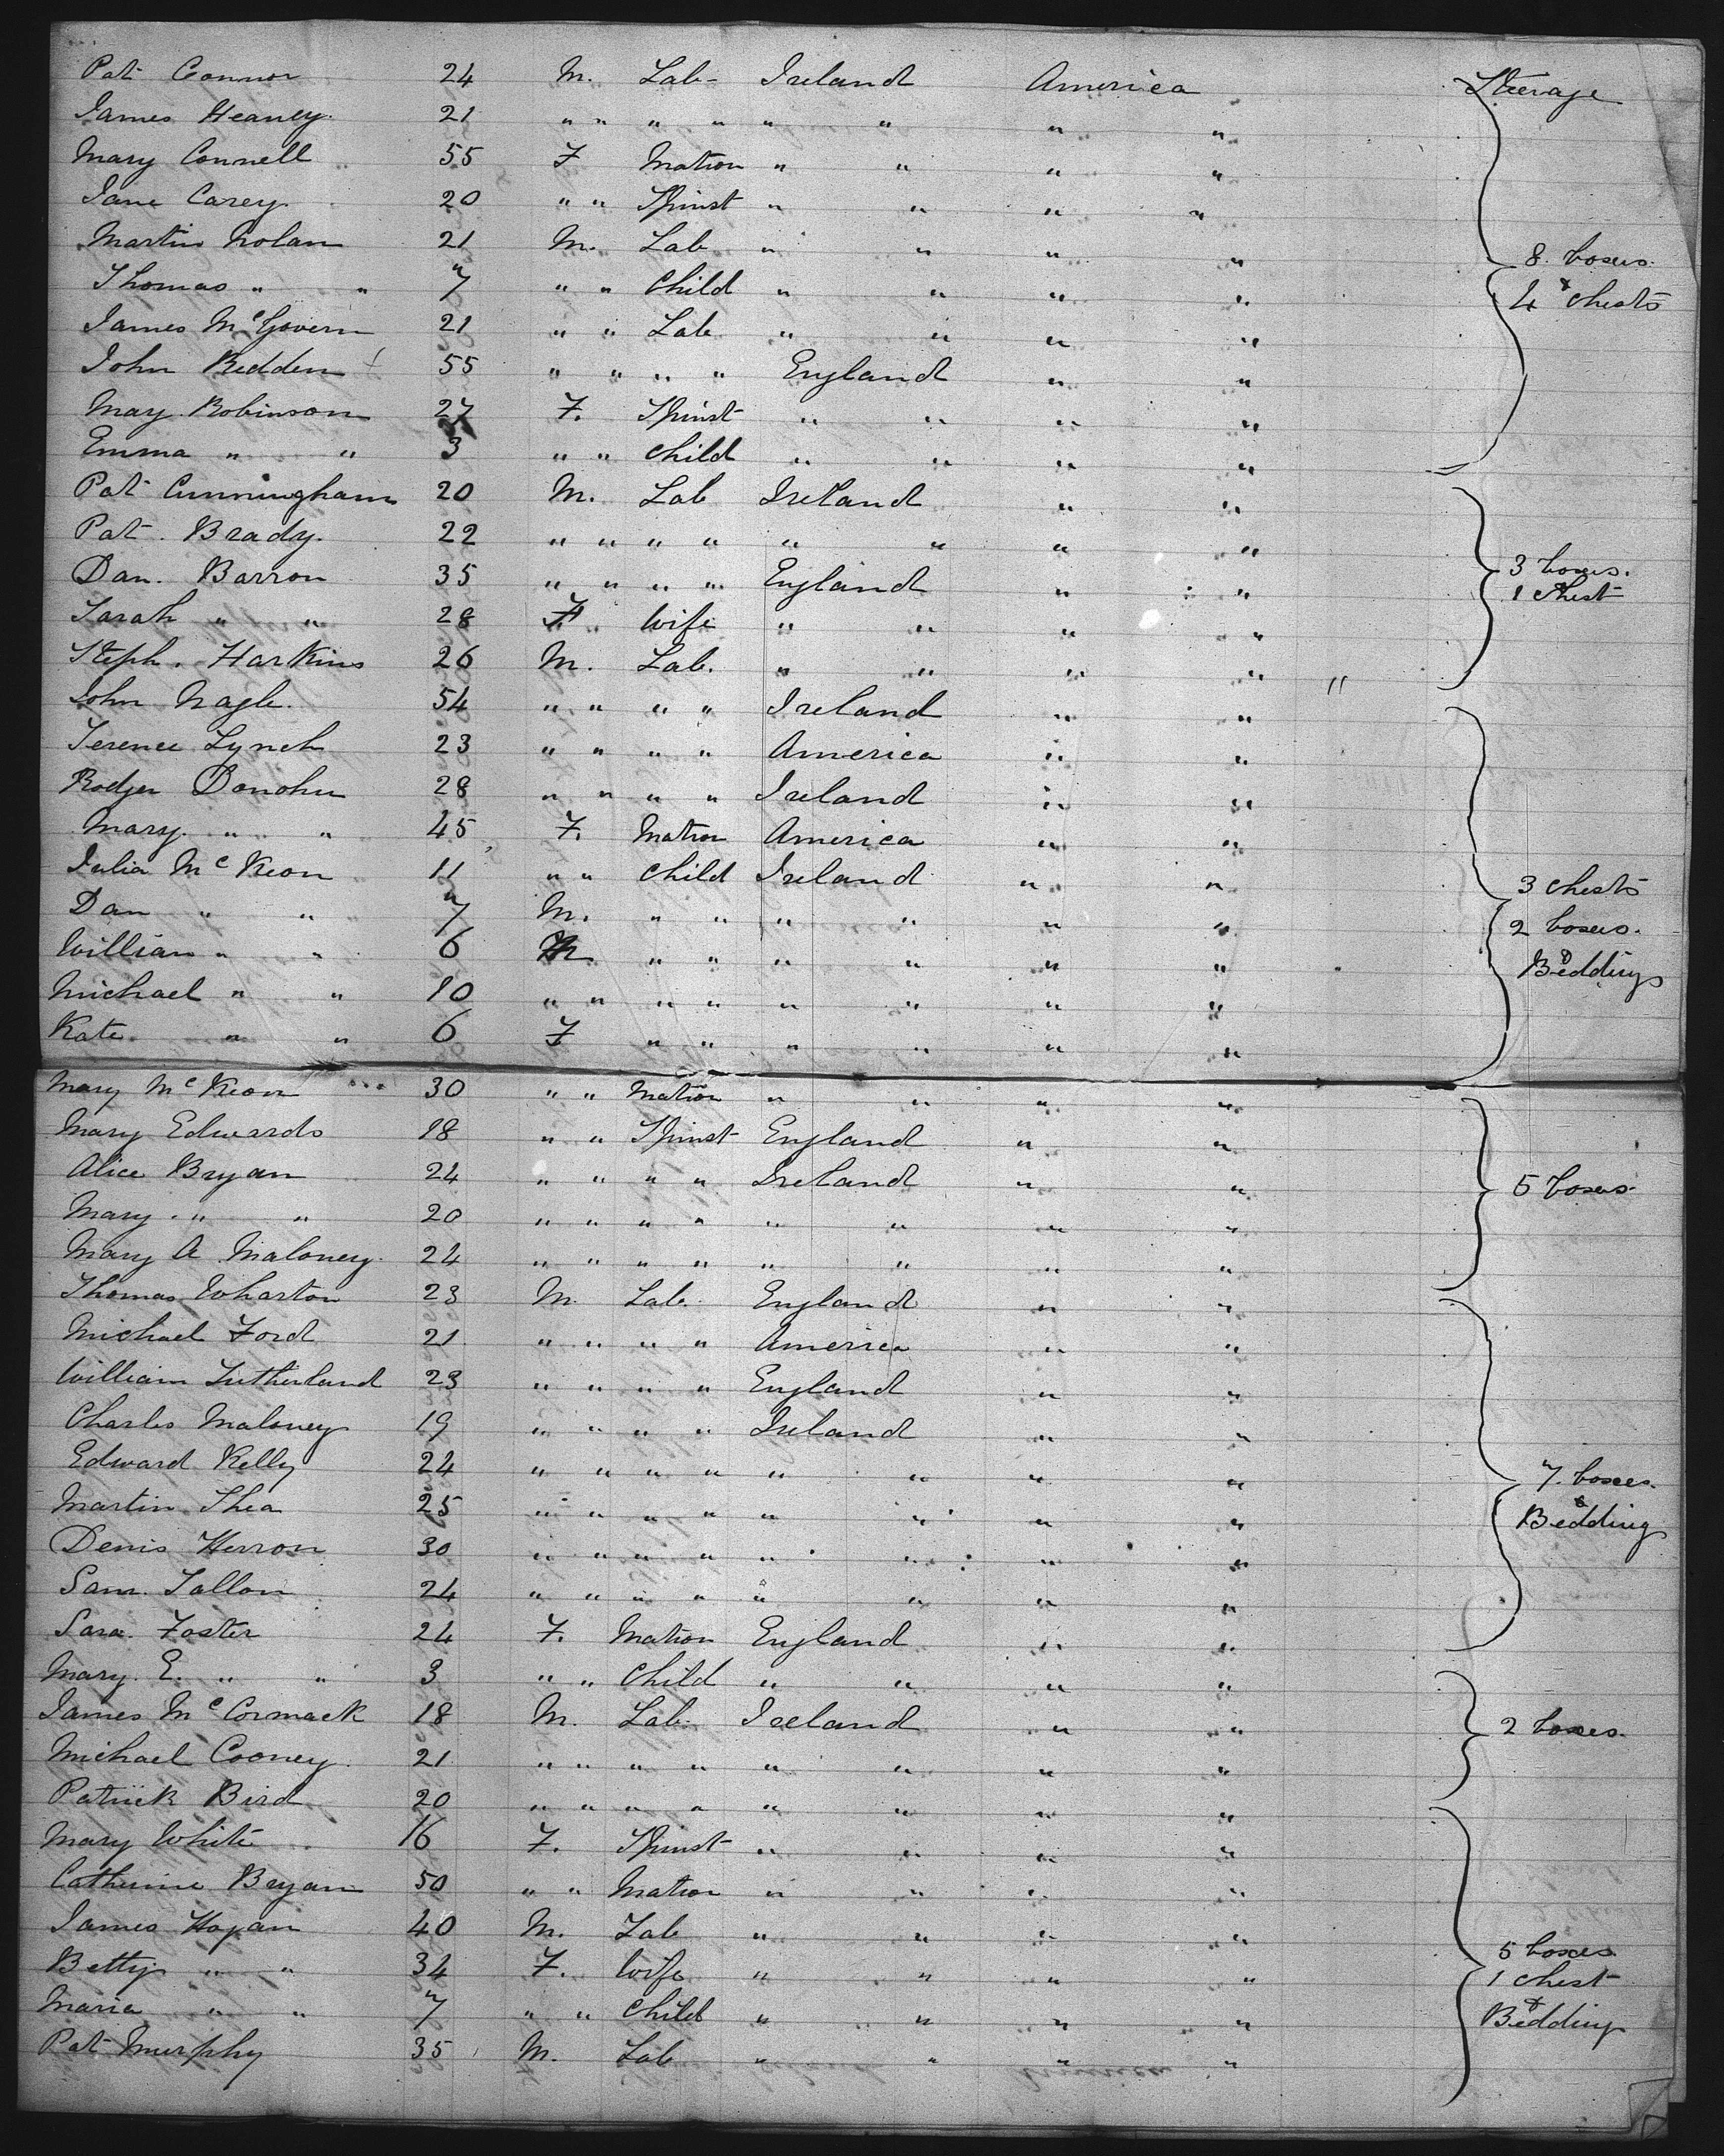 Pat Connor 24 M. Lab- Ireland America Steerage
James Heaney. 21 " " " " " " " "
Mary Connell 55 F Matron " " " "
Jane Carey. 20 " " Spinst " " " "
Martin Nolan 21 M. Lab " " " "
Thomas " " 7 " " Child " " " " 8. boxes.
James McGovern 21 " " Lab " " " " & 4 Chests
John Redden 55 " " " " England " "
Mary Robinson 27 F. Spinst " " " "
Emma " " 3 " " Child " " " "
Pat Cunningham 20 M. Lab Ireland " "
Pat. Brady. 22 " " " " " " " "
Dan. Barron 35 " " " " England " " 3 boxes.
Sarah " " 28 F " Wife " " " " 1 Chest
Steph. Harkins 26 M. Lab. " " " " "
John Nagle. 54 " " " " Ireland " "
Terence Lynch 23 " " " " America " "
Rodger Donohu 28 " " " " Ireland " "
Mary. " " 45 F. Matron America " "
Julia McKeon 11 " " Child Ireland " " 3 Chests
Dan " " 7 M. " " " " " " 2 boxes.
William " " 6 M " " " " " " & Bedding
Michael " " 10 " " " " " " " "
Kate " " 6 F " " " " " "
Mary McKeon 30 " " Matron " " " "
Mary Edwards 18 " " Spinst England " "
Alice Bryan 24 " " " " Ireland " " 5 boxes.
Mary. " " 20 " " " " " " " "
Mary A Maloney. 24 " " " " " " " "
Thomas Wharton 23 M. Lab. England " "
Michael Ford 21 " " " " America " "
William Sutherland 23 " " " " England " "
Charles Maloney 19 " " " " Ireland " "
Edward Kelly 24 " " " " " " " " 7. boxes.
Martin Shea 25 " " " " " " " " & Bedding
Denis Herron 30 " " " " " " " "
Sam. Tallon 24 " " " " " " " "
Sara. Foster 24 F. Matron England " "
Mary. E. " " 3 " " Child " " " "
James McCormack 18 M. Lab. Ireland " " 2 boxes.
Michael Cooney. 21 " " " " " " " "
Patrick Bird 20 " " " " " " " "
Mary White 16 F. Spinst " " " "
Catherine Bryan 50 " " Matron " " " "
James Hogan 40 M. Lab " " " " 5 boxes
Betty " " 34 F. Wife " " " " 1 Chest
Maria " " 7 " " Child " " " " & Bedding
Pat Murphy 35 M. Lab " " " "